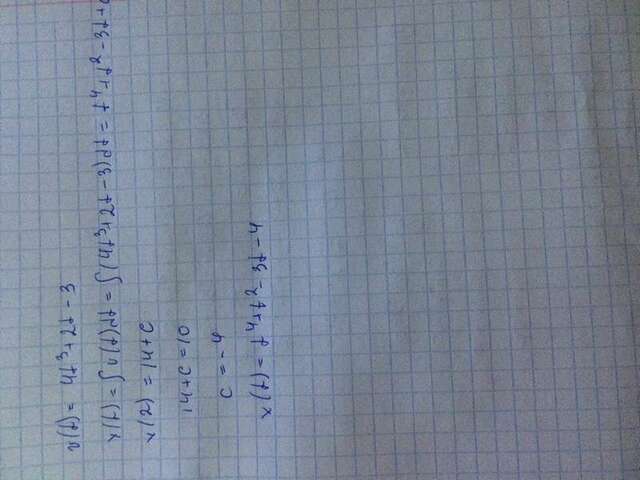 v(t) = 4t³+2t-3
x(t)= ∫v(t)dt = ∫(4t³+2t-3)dt = t⁴+t²-3t+
x(2) = 14+C
14+C=10
C=-4
x(t) = t⁴+t²-3t-4